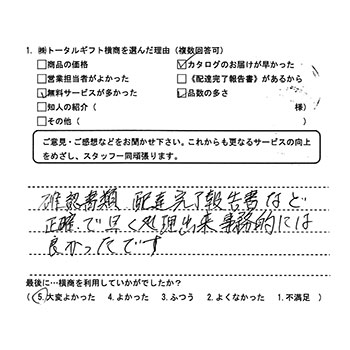 1. ㈱トータルギフト横商を選んだ理由（複数回答可）
□商品の価格 ☑カタログのお届けが早かった
□営業担当者がよかった □《配達完了報告書》があるから
☑無料サービスが多かった ☑品数の多さ
□知人の紹介（ 様）
□その他（ ）
ご意見・ご感想などをお聞かせ下さい。これからも更なるサービスの向上
をめざし、スタッフ一同頑張ります。
確認書類 配達完了報告書など
正確で早く処理出来事務的には
良かったです
最後に…横商を利用していかがでしたか？
（5.大変よかった 4.よかった 3.ふつう 2.よくなかった 1.不満足 ）